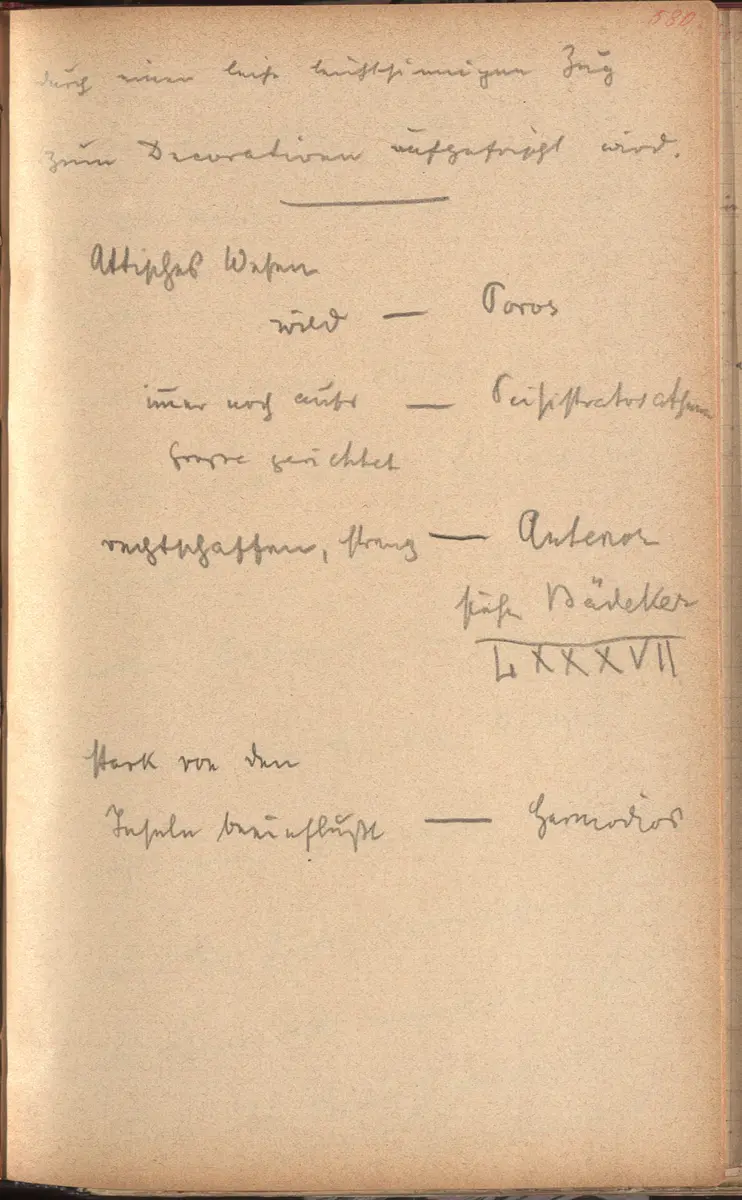 580.
durch einen leise leichtsinnigen Zug
zum Decorativen aufgefrischt wird.
Attisches Wesen
wild — Poros
immer noch aufs — Peisistratos athena
Grosse gerichtet
rechtschaffen, streng — Antenor
siehe Bädeker
LXXXVII
stark von den
Inseln beeinflußt — Harmodios